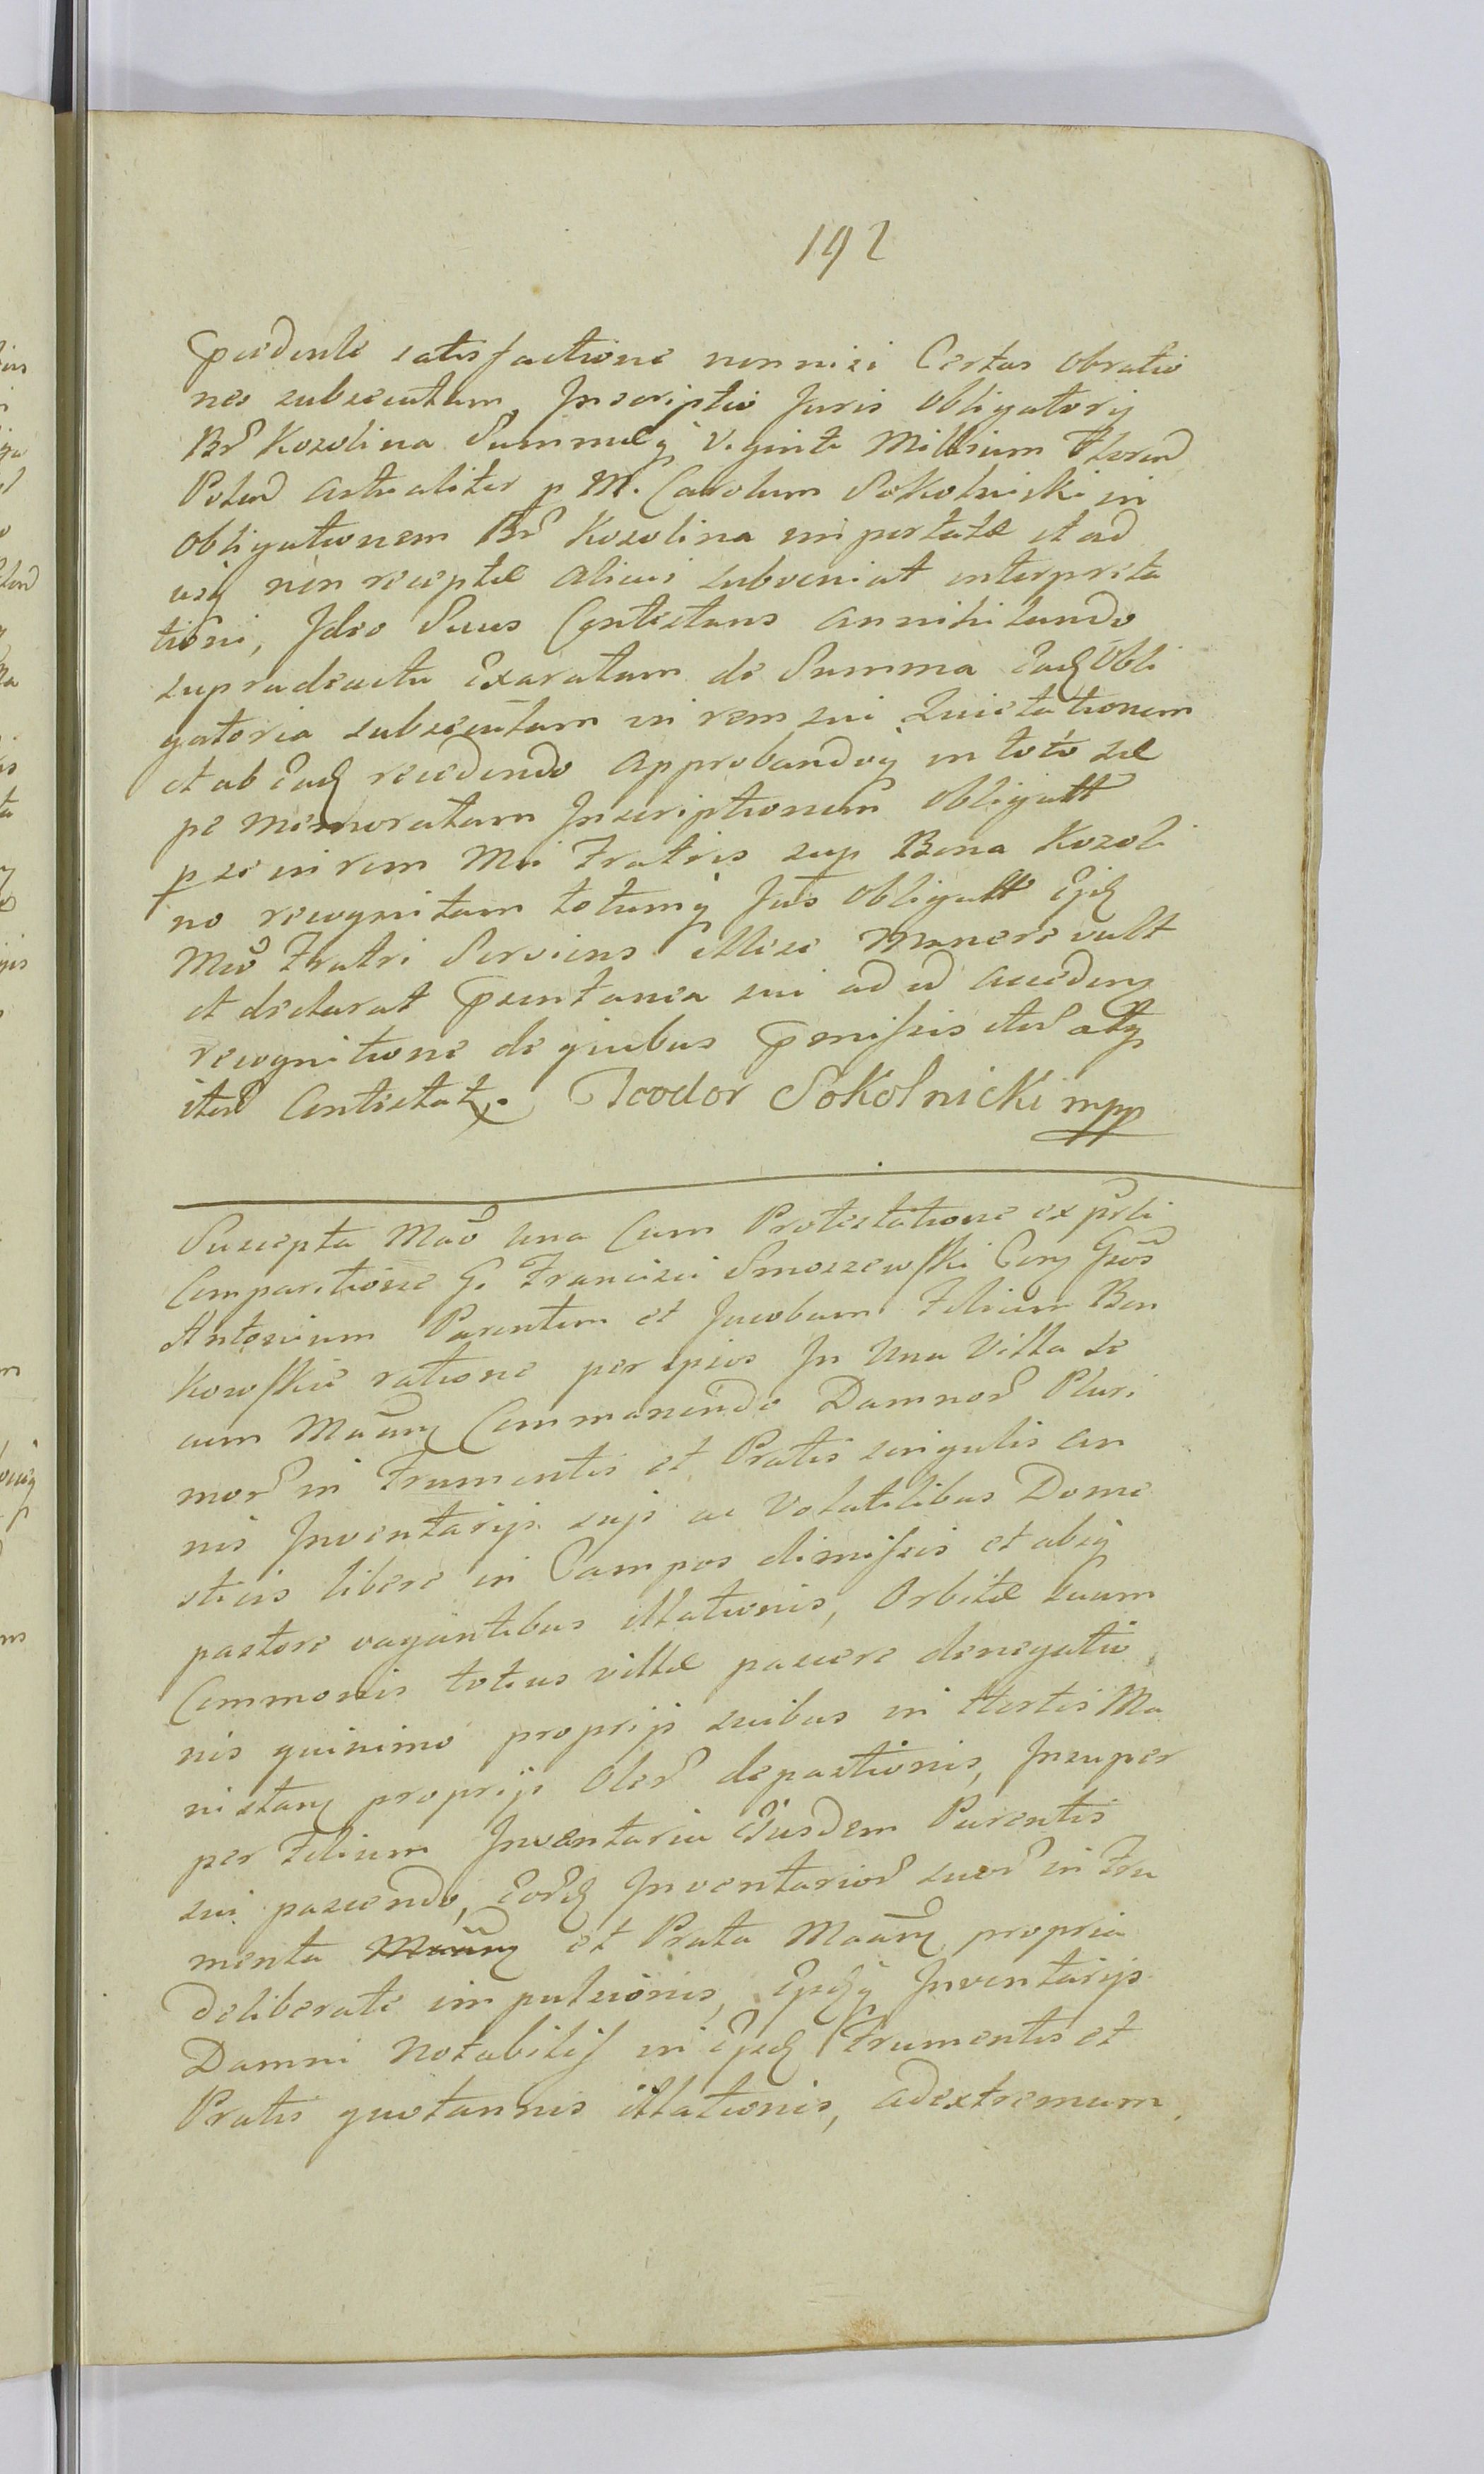 192
Pcedente satisfactione nonnisi Certas obratio
nes subsecutam, Inscriptio Juris obligatorij
Br Kozolina Summæq Viginti Millium Floren
Polon actualiter p M. Carolum Sokolnicki in
obligationem Br Kozolina importatæ et ad
usq non receptæ alicui subveniat interpreta
tioni, Ideo Suus Contestans annihilando
supradeacta Exaratam de Summa Ead Obli
gatoria subsecutam in rem sui Quietationem
et ab Ead recedendo approbandoq in toto sæ
pe memoratam Inscriptionem obligatt
p se in rem Mci Fratris sup Bona Kozoli
no recognitam totumq Jus obligatt Ejd
Mco Fratri Serviens illese Manere vult
et declarat Psentanea sui ad id acceden
recognitione de quibus Pmissis iter atq
iter Contestat. Teodor Sokolnicki mpp
Suscepta Mao una Cum Protestatione ex prti
Comparitione G. Francisci Smoszewski Con Gsos
Antonium Parentem et Jacobum Filium Ben
kowskie ratione per ipsos In Una Villa se
cum Commanendo Damnor Pluri
mor in Frumentis et Pratis singulis an
nis Inventarijs suis ac Volatilibus Dome
sticis libere in Campos dimissis et absq
pastore vagantibus illationis, Orbitæ suam
Communis totius villæ pascere denegatio
nis quinimo proprijs suibus in Hortis Ma
nistan proprijs Oler depastionis, Insuper
per Filium Inventaria Ejusdem Parentis
sui pascendo, Eord Inventarior suor in Fru
menta et Prata propria
deliberate impulsionis, Inventarijs
Damni notabilis in Frumentis et
Pratis quotannis illationis, ad extremum